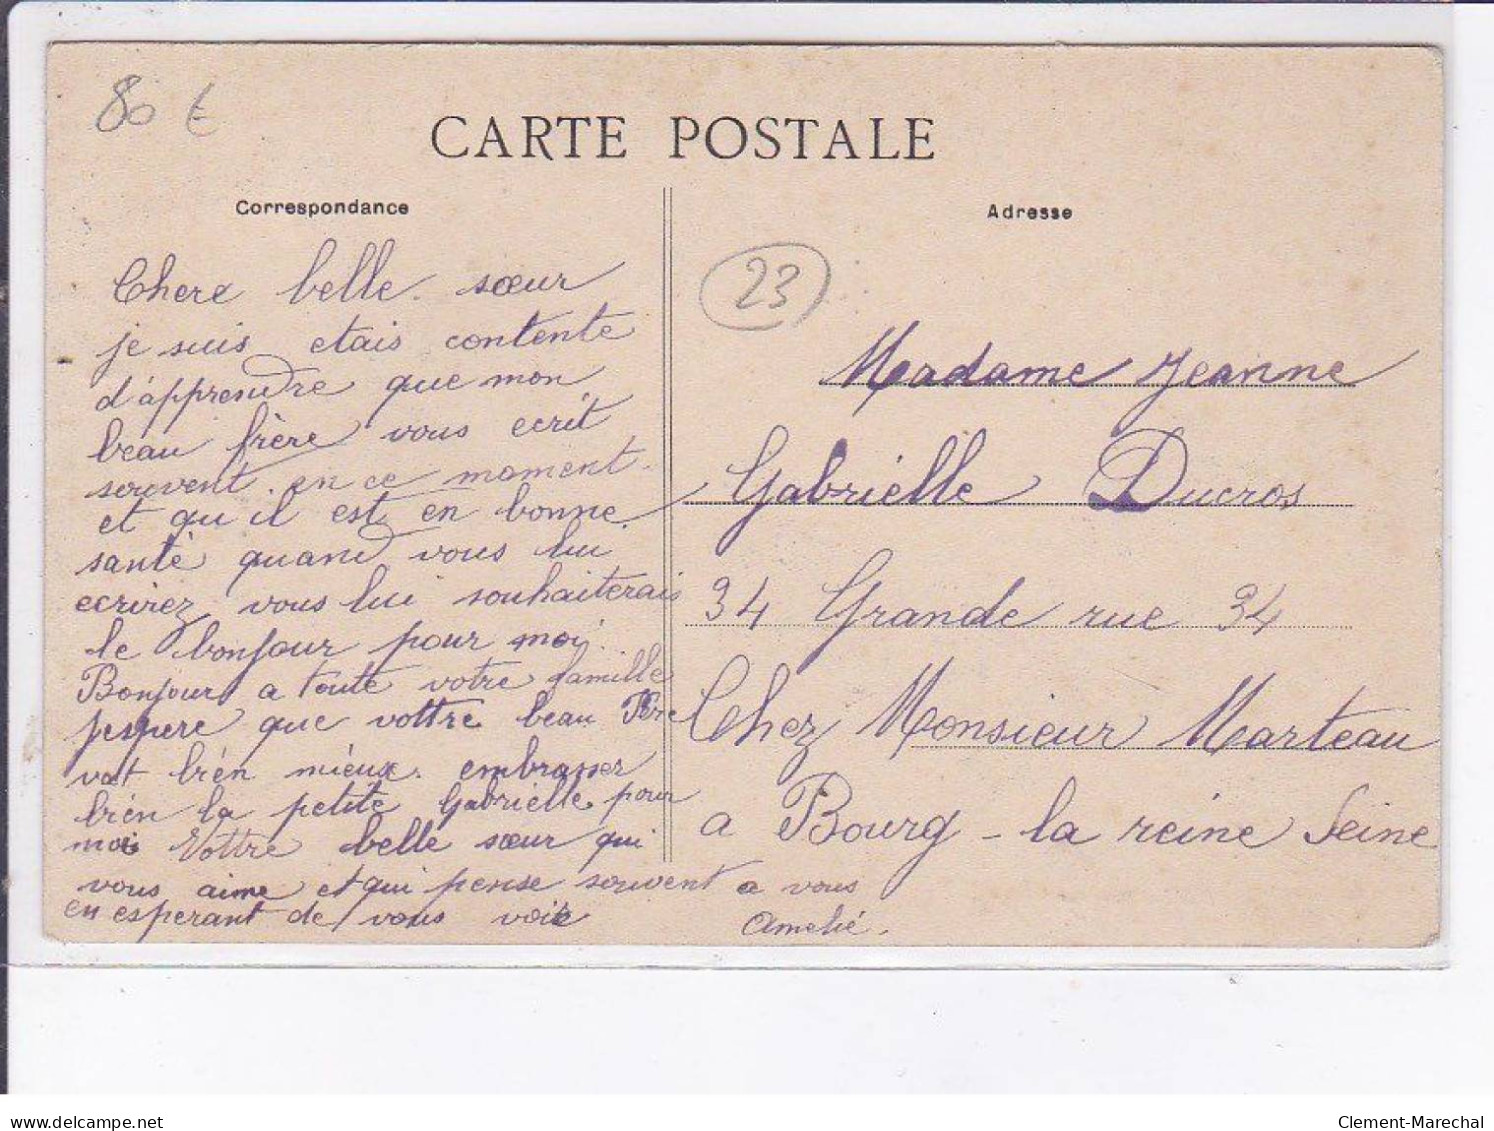 80 €
CARTE POSTALE
Correspondance
Adresse
23
Chere belle. sœur
je suis etais contente
d'apprendre que mon
beau frère vous ecrit
souvent. en ce moment.
et qu il est en bonne
santè quand vous lui
ecrirez vous lui souhaiterais
le bonjour pour moi.
Bonjour a toute votre famille
jespere que vottre beau Pére
vat bién miéux. embrasser
bién la petite Gabriélle pour
moi Vottre belle sœur qui
vous aime et qui pense souvent a vous
en esperant de vous voir
Amelié.
Madame Jeanne
Gabriélle Ducros
34 Grande rue 34
Chez Monsieur Marteau
a Bourg - la reine Seine
delcampe.net
Clement-Marechal